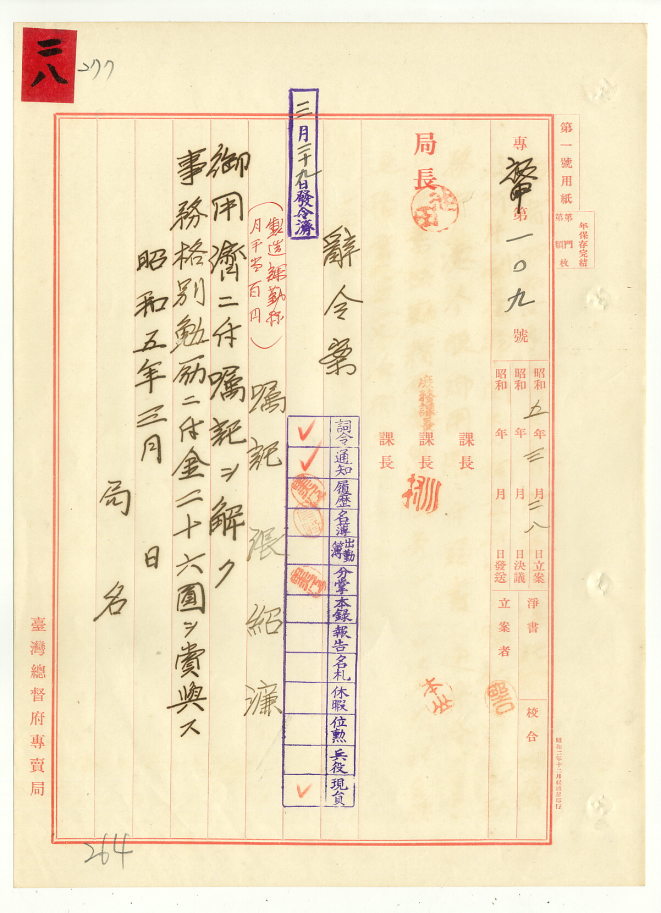 三八
277
第一號用紙
第 門
第 類 枚
年保存完結
專 第一〇九號
昭和五年三月二八日立案
昭和 年 月 日決議
昭和 年 月 日發送
淨書
立案者
校合
局長
課長
庶務課長
課長
三月二十九日發令濟
辭令案
詞令
通知
履歷
名簿
出勤簿
分掌
本錄
報告
名札
休暇
位勳
兵役
現員
(製造課勤務
月手當百円)
囑託 張紹濂
御用濟ニ付囑託ヲ解ク
事務格別勉励ニ付金二十六圓ヲ賞與ス
昭和五年三月 日
局名
臺灣總督府專賣局
264